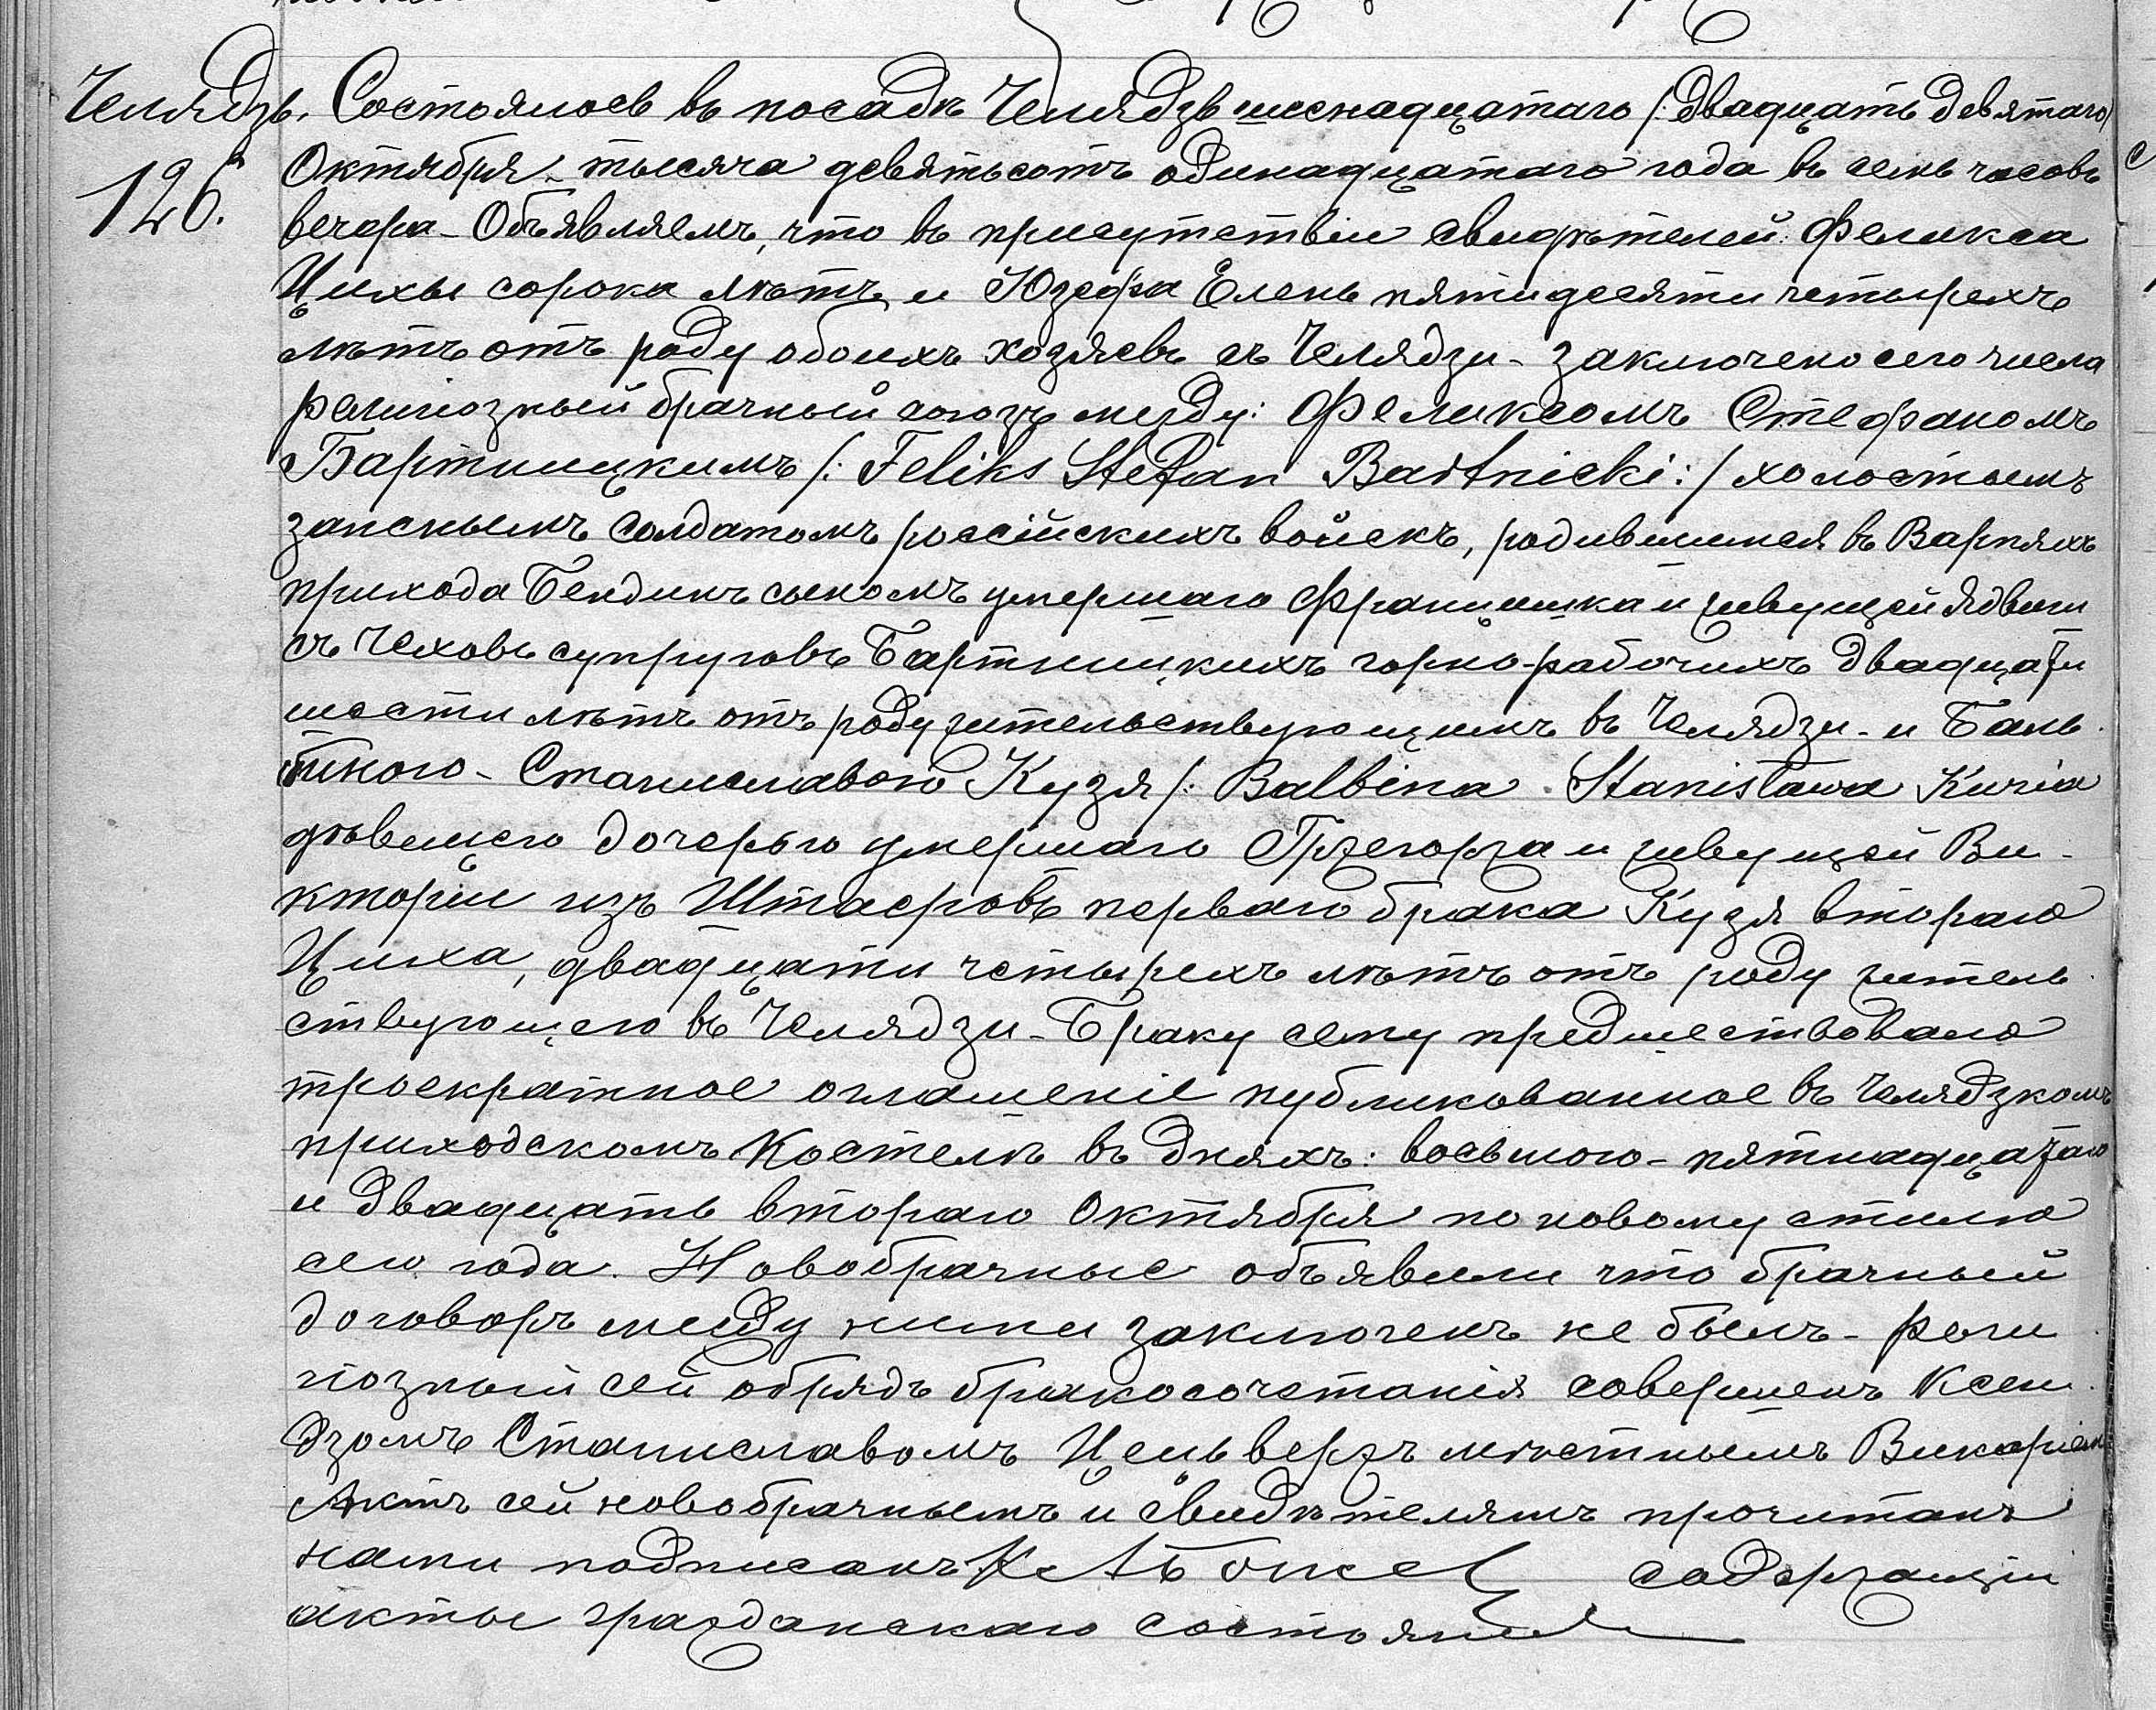 Челядзь. Состоялось въ посадѣ Челядзь шеснадцатаго /: двадцать девятаго/
126. Октября - тысяча девятьсотъ одинадцатаго года въ семь часовъ
вечера - Объявляемъ, что въ присутствіи свидѣтелей: Феликса
Цихы сорока лѣтъ и Юзефа Елень пятидесяти четырехъ
лѣтъ отъ роду обоихъ хозяевъ съ Челядзи - заключено сего числа
религіозный брачный союзъ между: Феликсомъ Стефаномъ
Бартницкимъ /: Feliks Stefan Bartnicki :/ холостымъ
запснымъ солдатомъ россійскихъ войскъ, родившимся въ Варпяхъ
прихода Бендинъ сыномъ умершаго Францишка и живущей Ядвиги
съ Чеховъ супруговъ Бартницкихъ горно-рабочихъ двадцати
шести лѣтъ отъ роду жительствующимъ въ Челядзи - и Баль
биною - Станиславою Кузя /: Balbina Stanisława Kuzia
дѣвицею дочерью умершаго Гржегоржа и живущей Ви-
кторіи изъ Штасровъ перваго брака Кузя втораго
Циха, двадцати четырехъ лѣтъ отъ роду житель
ствующею въ Челядзи - Браку сему предшествовало
троекратное оглашеніе публикованное въ Челядзкомъ
приходскомъ Костелѣ въ дняхъ: восьмого - пятнадцатаго
и двадцать втораго Октября по новому стилю
сего года. Новобрачные объявили что брачный
договоръ между ними заключенъ не былъ - рели
гіозный сей обрядъ бракосочетанія совершенъ Ксен
дзомъ Станиславомъ Ценьвержъ мѣстнымъ Викаріемъ
Актъ сей новобрачнымъ и свидѣтелямъ прочитанъ
нами подписанъ содержащій
акты гражданскаго состоянія